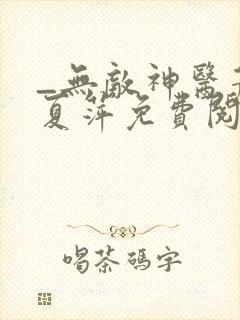 _無敵神醫
夏萍免費閱
喝茶碼字